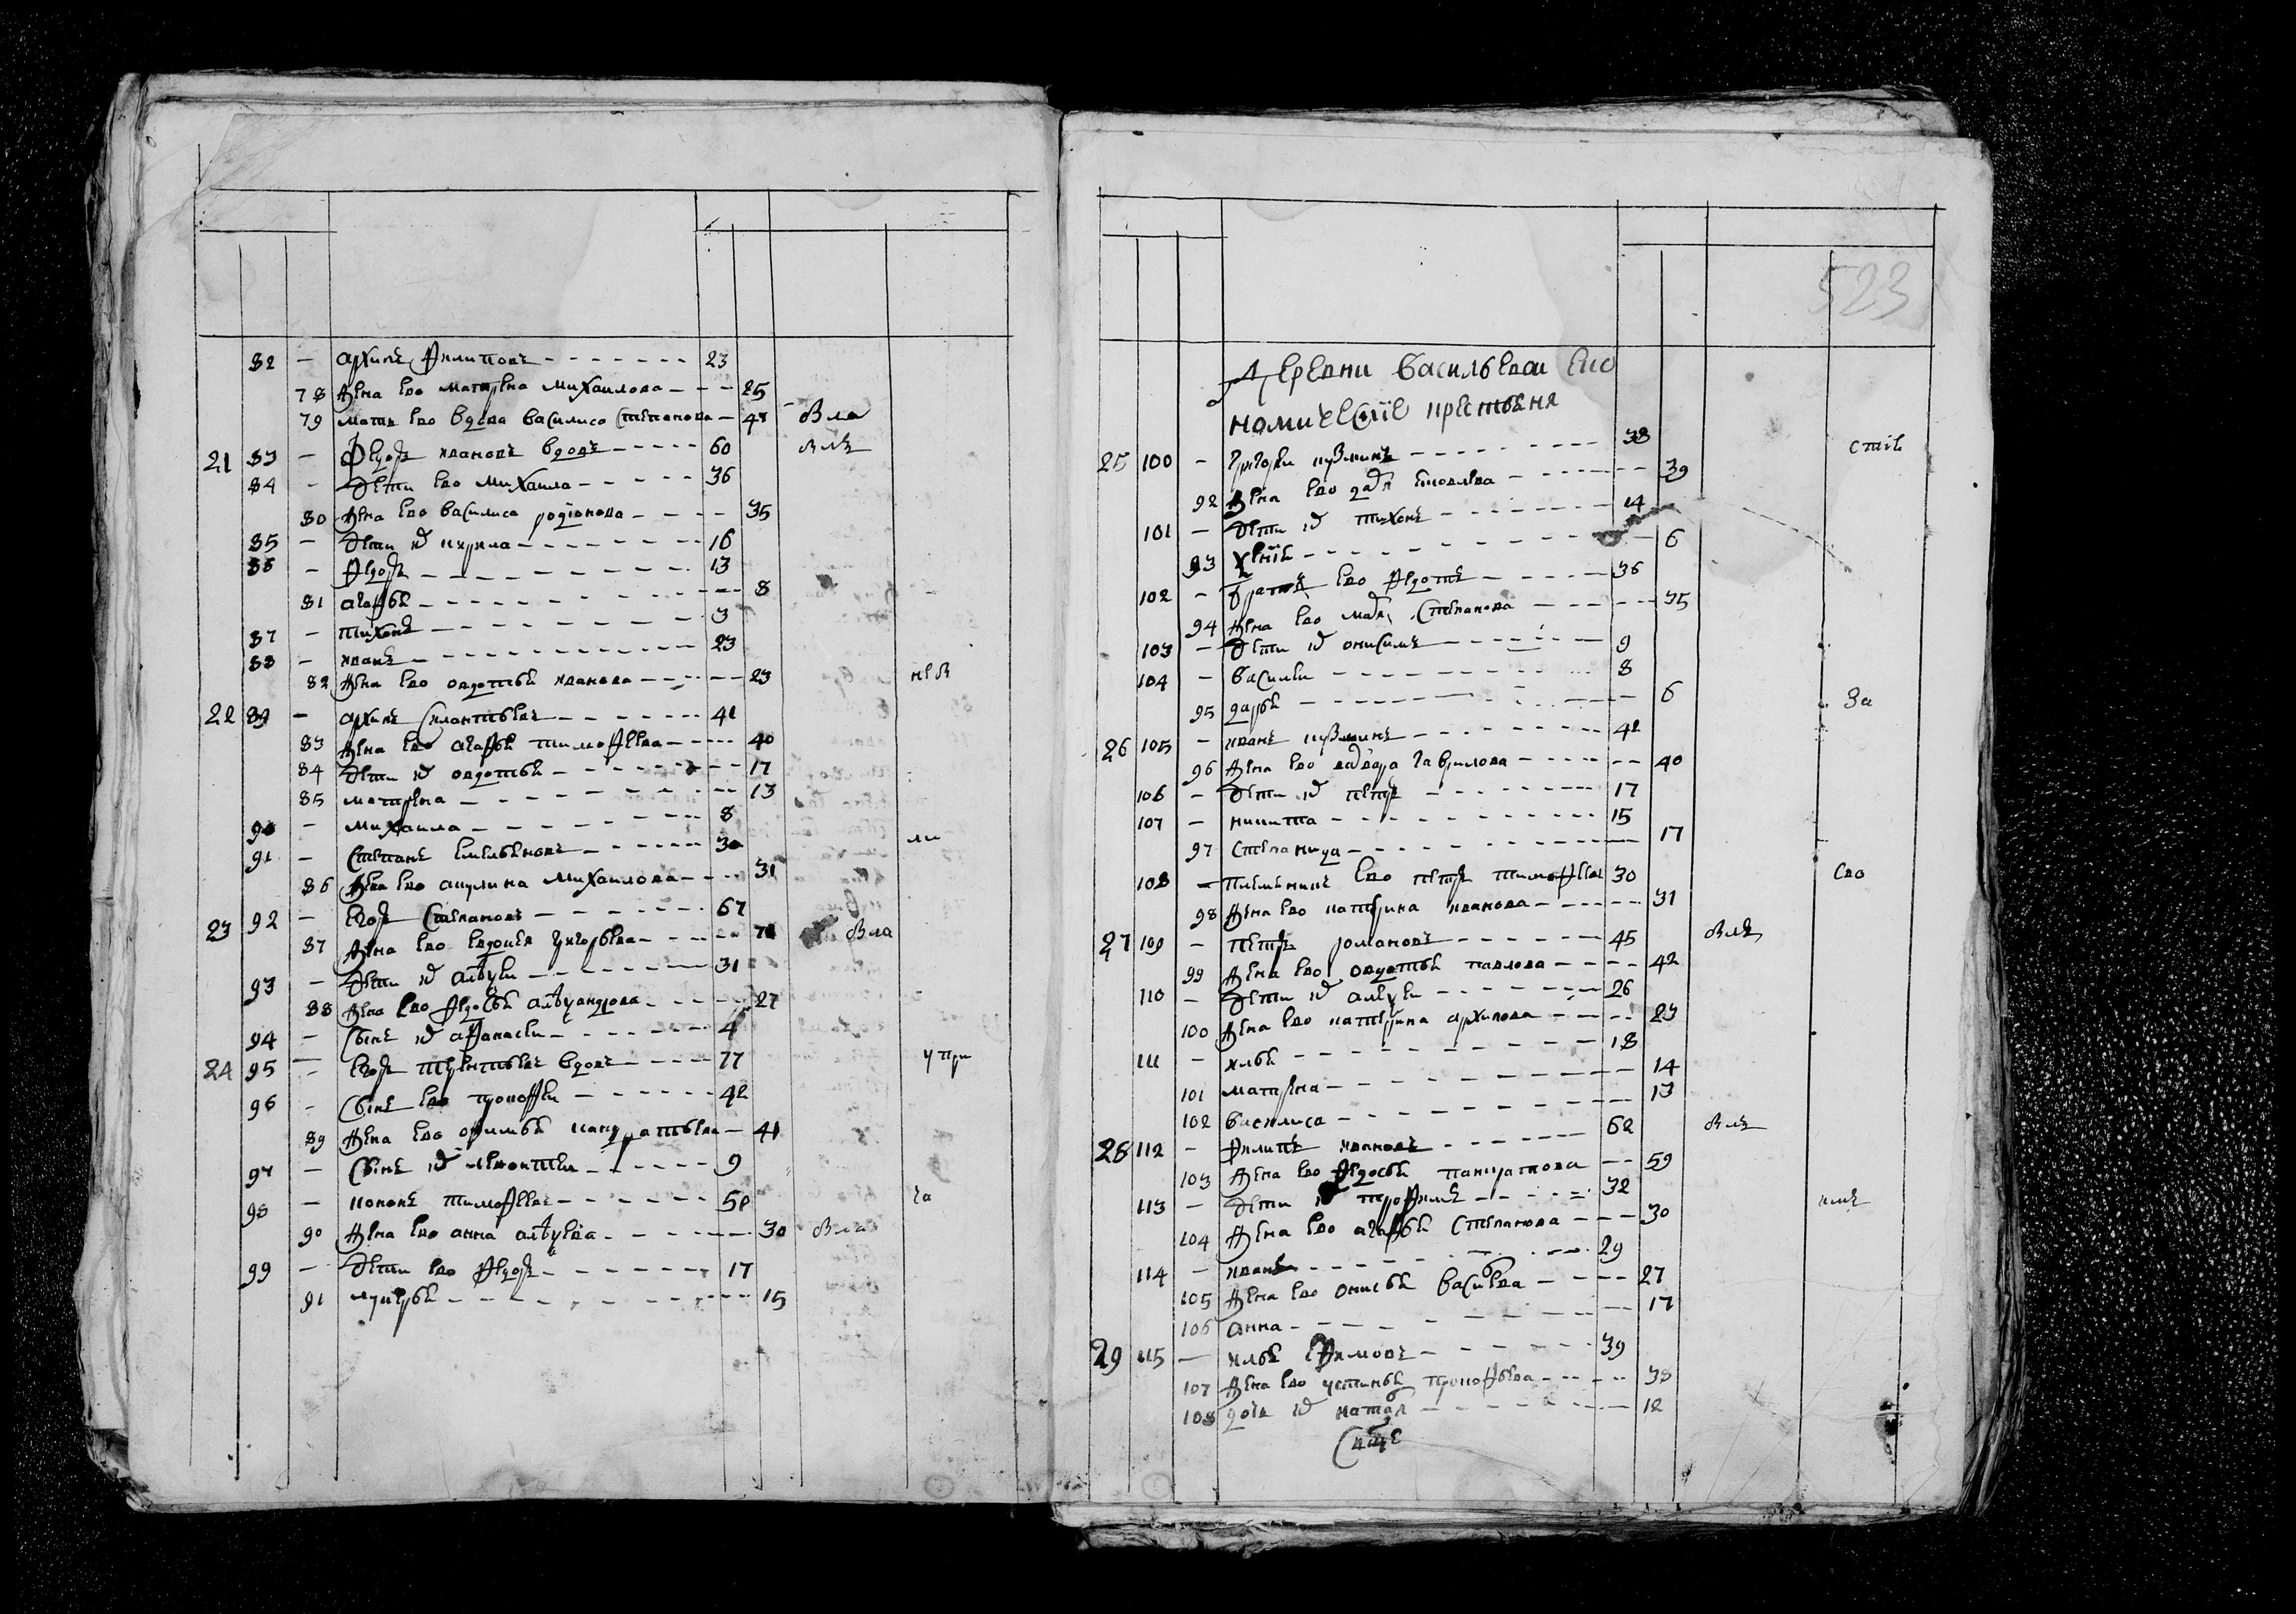 82 — архипъ филиповъ 23
78 жена ево матрена михаилова 25
79 мать ево вдова василиса степанова 48 вла
21 83 — федоръ ивановъ вдовъ 60 влъ
84 — дети ево михаила 36
80 жена ево василиса родїонова 35
85 — дети их кирила 16
86 — федоръ 13
81 агафья 8
87 — тихонъ 3
88 — иванъ 23
82 жена ево овдотья иванова 23
22 89 — архипъ силантьевъ 41
83 жена ево агафья тимофеева 40
84 дети их овдотья 17
85 матрена 13
90 — михаила 8
91 — степанъ емельяновъ 30
86 жена ево акулина михаилова 31
23 92 — егоръ степановъ 67
87 жена ево евдокея григорьева 70 вла
93 — дети их алеѯеи 31
88 жена ево федосья алеѯандрова 27
94 — сынъ их афанасеи 4
24 95 — егоръ терентьевъ вдовъ 77
96 — сынъ ево прокофеи 42
89 жена ево офимья кандратьева 41
97 — сынъ их леонтеи 9
98 — кононъ тимофеевъ 58
90 жена ево анна алеѯеева 30 вла
99 — дети ево федоръ 17
91 лукерья 15
523
деревни васильевои еко
номическїе крестьяня
25 100 — григореи кузминъ 38
92 жена ево дарья яковлева 39
101 — дети их тихонъ 14
93 ѯенїя 6
102 — братъ ево федотъ 36
94 жена ево марья степанова 35
103 — дети их онисимъ 9
104 — василеи 8
95 дарья 6
26 105 — иванъ кузминъ 42
96 жена ево варвара гаврилова 40
106 — дети их петръ 17
107 — никита 15
97 степанида 17
108 — племеникъ ево петръ тимофеевъ 30
98 жена ево катерина иванова 31
27 109 — петръ романовъ 45 влъ
99 жена ево овдотья павлова 42
110 — дети их алеѯеи 26
100 жена ево катерина архипова 23
111 — илья 18
101 матрена 14
102 василиса 13
28 112 — филипъ ивановъ 62 влъ
103 жена ево федосья панкратова 59
113 — дети их трофимъ 32
104 жена ево агафья степанова 30
114 — иванъ 29
105 жена ево онисья васильева 27
106 анна 17
29 115 — илья ефимовъ 39
107 жена ево устинья прокофьева 38
108 дочь их наталья 12